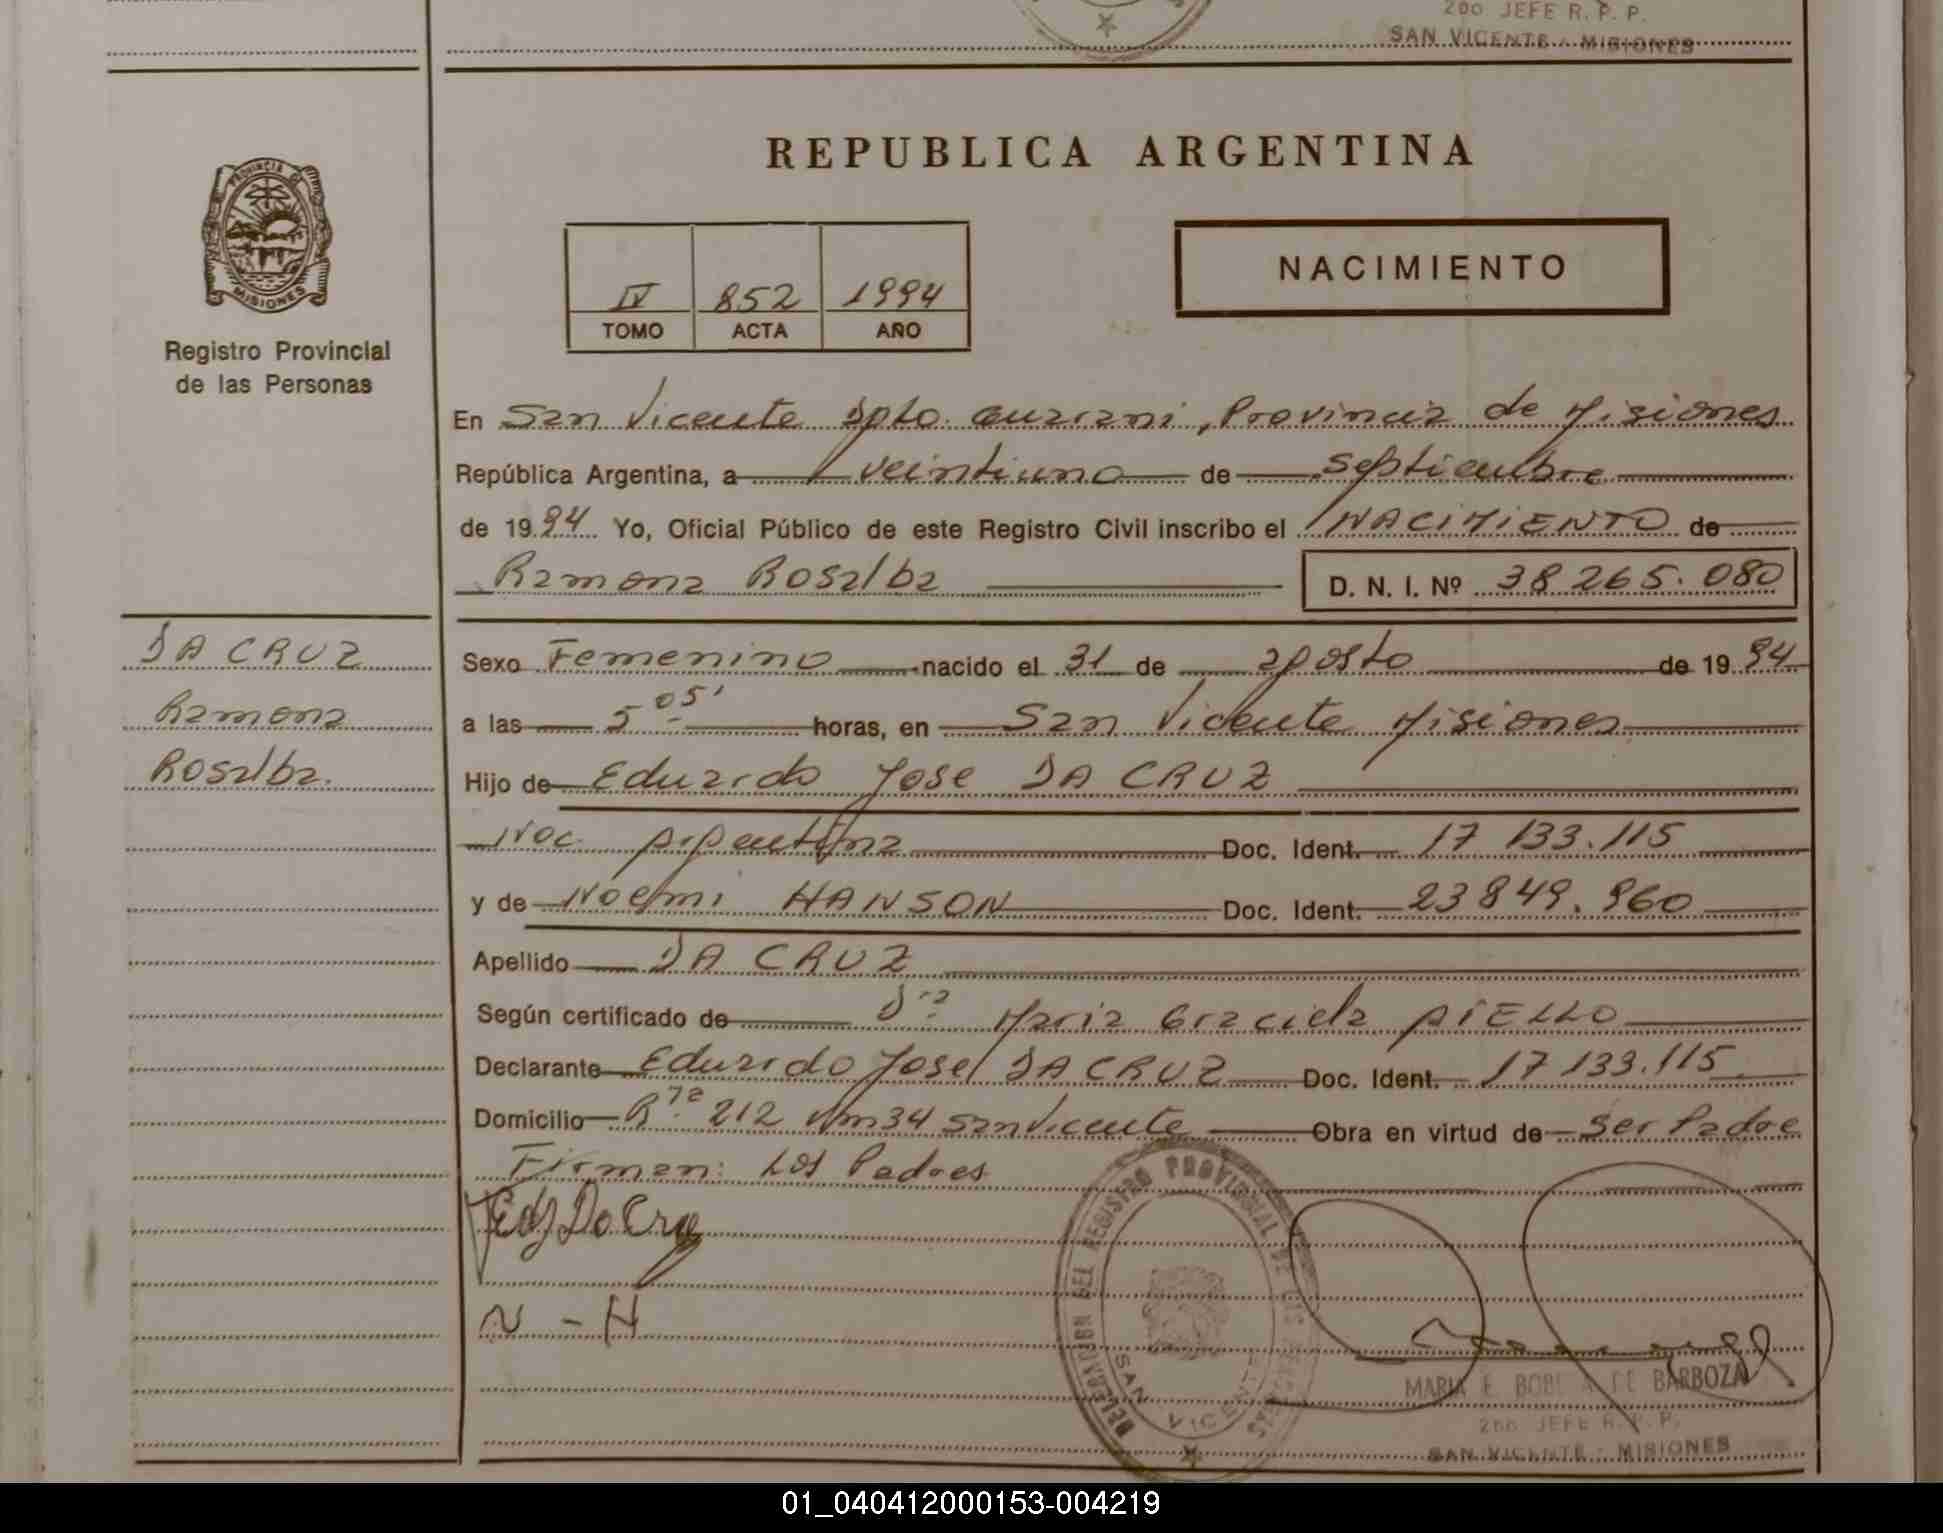 2do JEFE R. P. P.
SAN VICENTE - MISIONES
REPUBLICA ARGENTINA
PROVINCIA DE
MISIONES
Registro Provincial
de las Personas
IV 852 1994
TOMO ACTA AÑO
NACIMIENTO
En San Vicente Dpto. Guarani, Provincia de Misiones
República Argentina, a veintiuno de septiembre
de 1994 Yo, Oficial Público de este Registro Civil inscribo el NACIMIENTO de
Ramona Rosalba D. N. I. Nº 38 265.080
DA CRUZ
Ramona
Rosalba.
Sexo Femenino nacido el 31 de agosto de 1994
a las 5 05' horas, en San Vicente Misiones
Hijo de Eduardo Jose DA CRUZ
Nac. Argentina Doc. Ident. 17 133.115
y de Noemi HANSON Doc. Ident. 23 849.960
Apellido DA CRUZ
Según certificado de Dra Maria Graciela AIELLO
Declarante Eduardo Jose DA CRUZ Doc. Ident. 17 133.115
Domicilio Rta 212 Km 34 San Vicente Obra en virtud de Ser Padre
Firman: Los Padres
N - H
DELEGACION DEL REGISTRO PROVINCIAL DE LAS PERSONAS
SAN VICENTE
MARIA E. DE BARBOZA
2do JEFE R. P. P.
SAN VICENTE - MISIONES
01_040412000153-004219